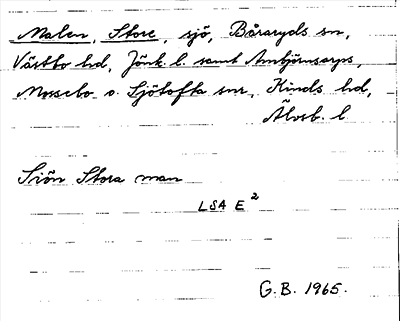 Malen, Store, sjö, Båraryds sn,
Västbo hd, Jönk. l. samt Ambjörnarps,
Mossebo o. Sjötofta snr, Kinds hd,
Älvsb. l
Siön Stora man
LSA E²
G.B. 1965.